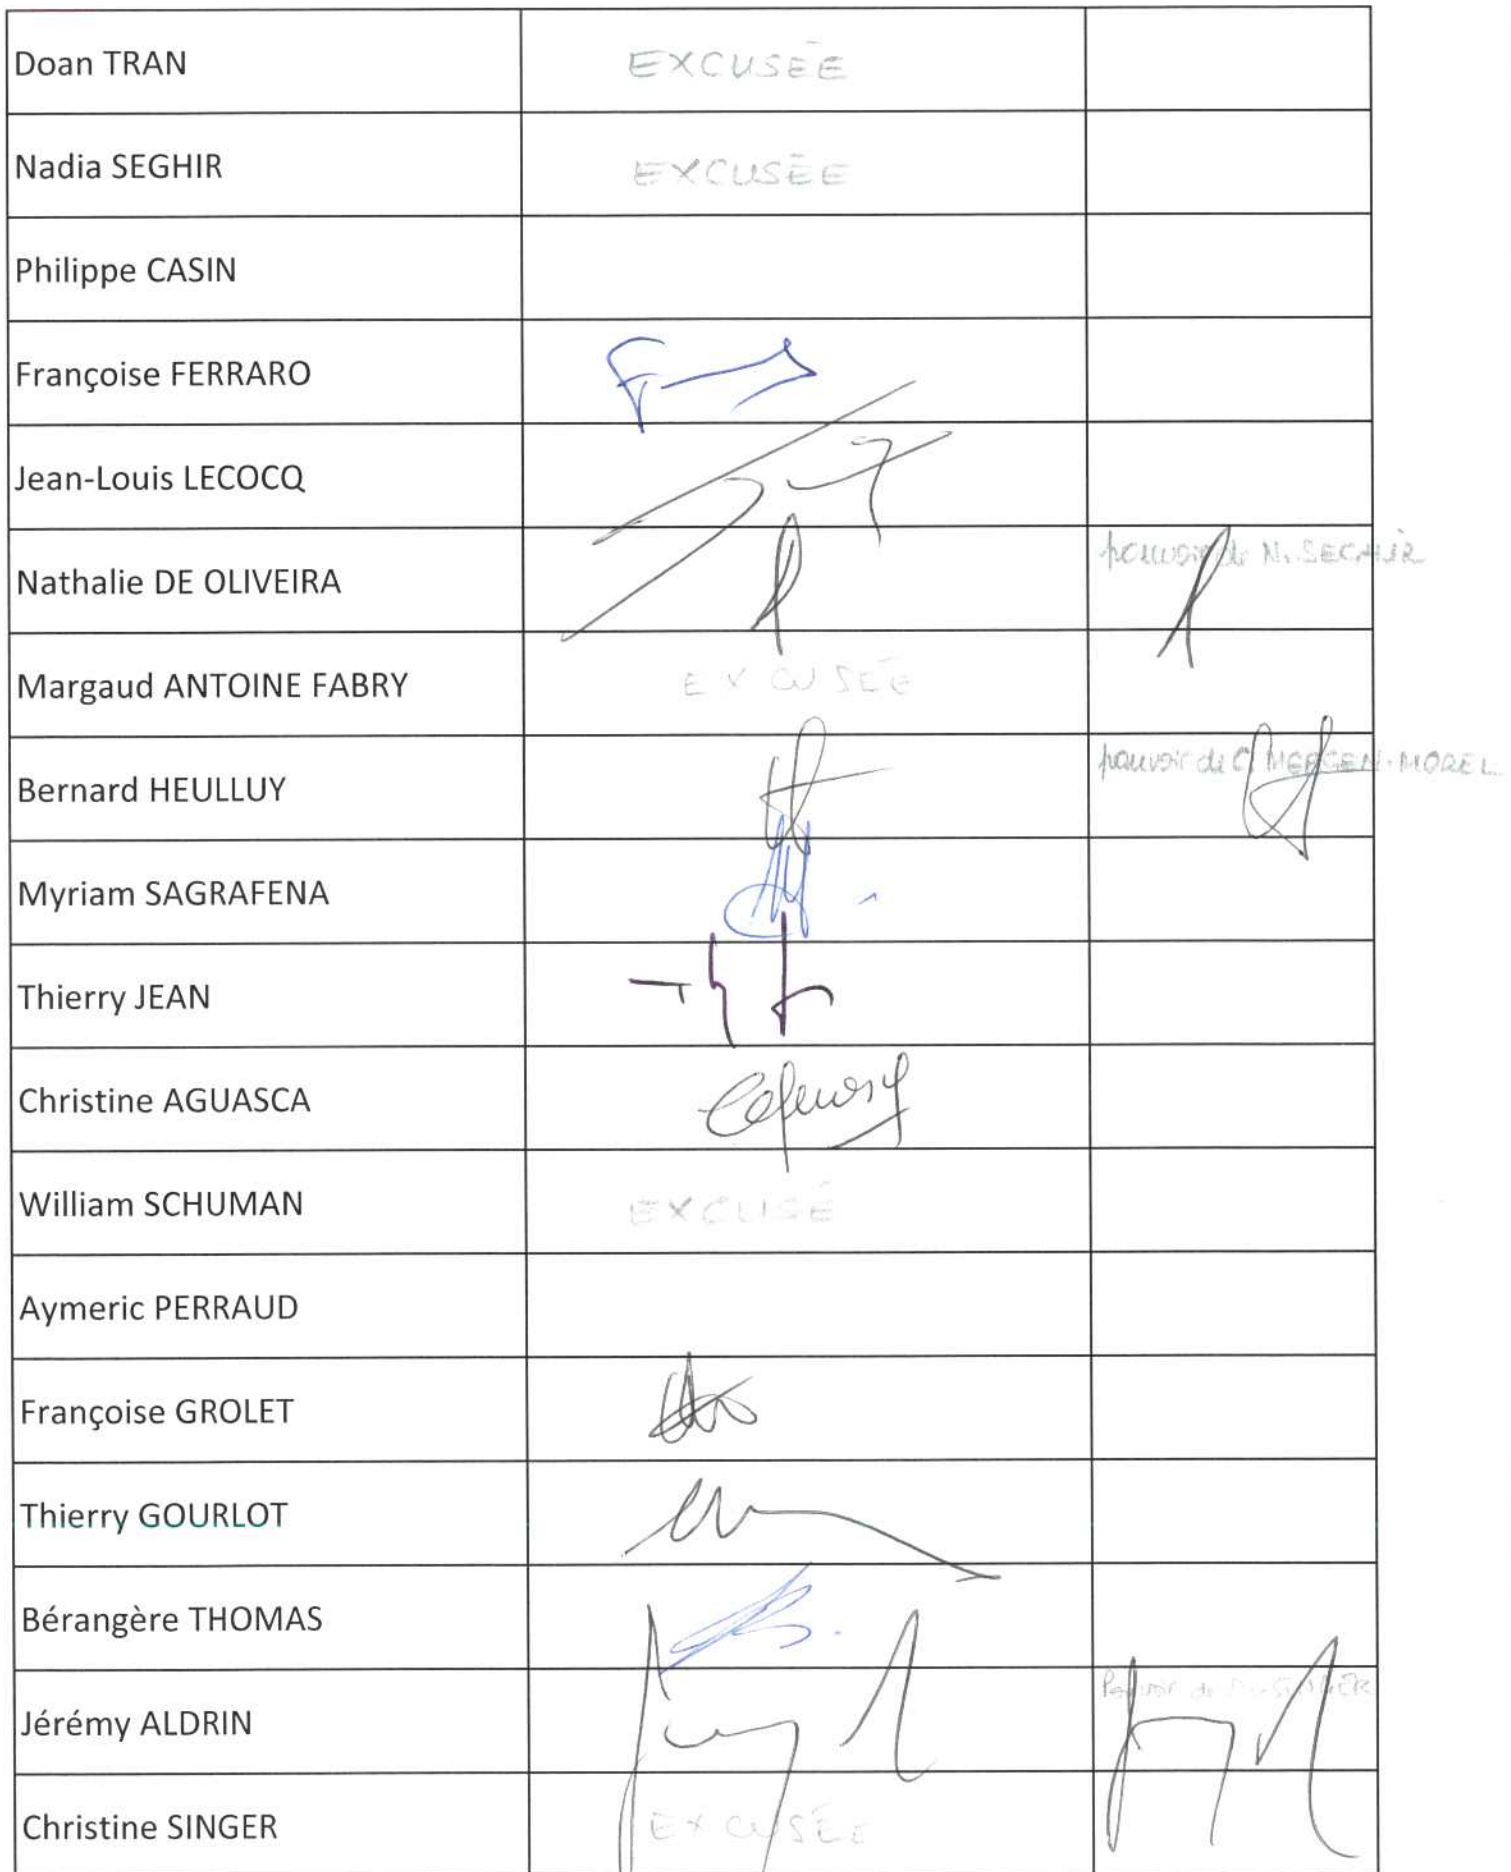 Doan TRAN EXCUSÉE
Nadia SEGHIR EXCUSÉE
Philippe CASIN
Françoise FERRARO
Jean-Louis LECOCQ
Nathalie DE OLIVEIRA pouvoir de N. SEGHIR
Margaud ANTOINE FABRY EXCUSÉE
Bernard HEULLUY pouvoir de C. MERGEN-MOREL
Myriam SAGRAFENA
Thierry JEAN
Christine AGUASCA
William SCHUMAN EXCUSÉ
Aymeric PERRAUD
Françoise GROLET
Thierry GOURLOT
Bérangère THOMAS
Jérémy ALDRIN Pouvoir de SINGER
Christine SINGER EXCUSÉE